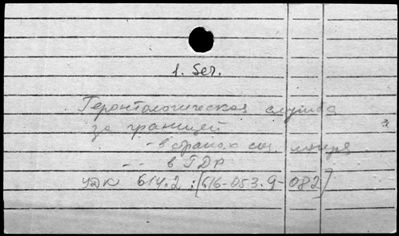 1. Ser.
Геронтологическая служба
за границей
- в странах соц. лагеря
-- в ГДР
УДК 614.2 :[616-053.9-082]